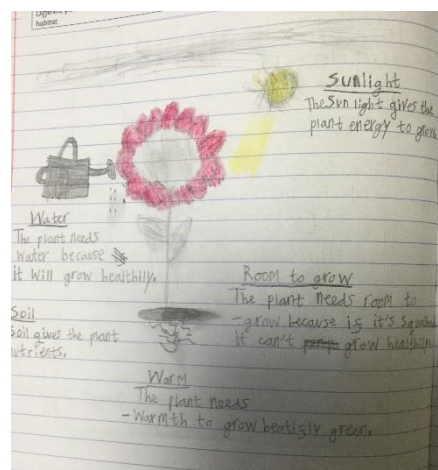 habitat
Sunlight
The Sun light gives the
plant energy to grow
Water
The plant needs
water because
it will grow healthily.
Room to grow
The plant needs room to
-grow because is it's squashed
it can't grow healthily
Soil
Soil gives the plant
nutrients.
Warm
The plant needs
-Warmth to grow beatisly green.